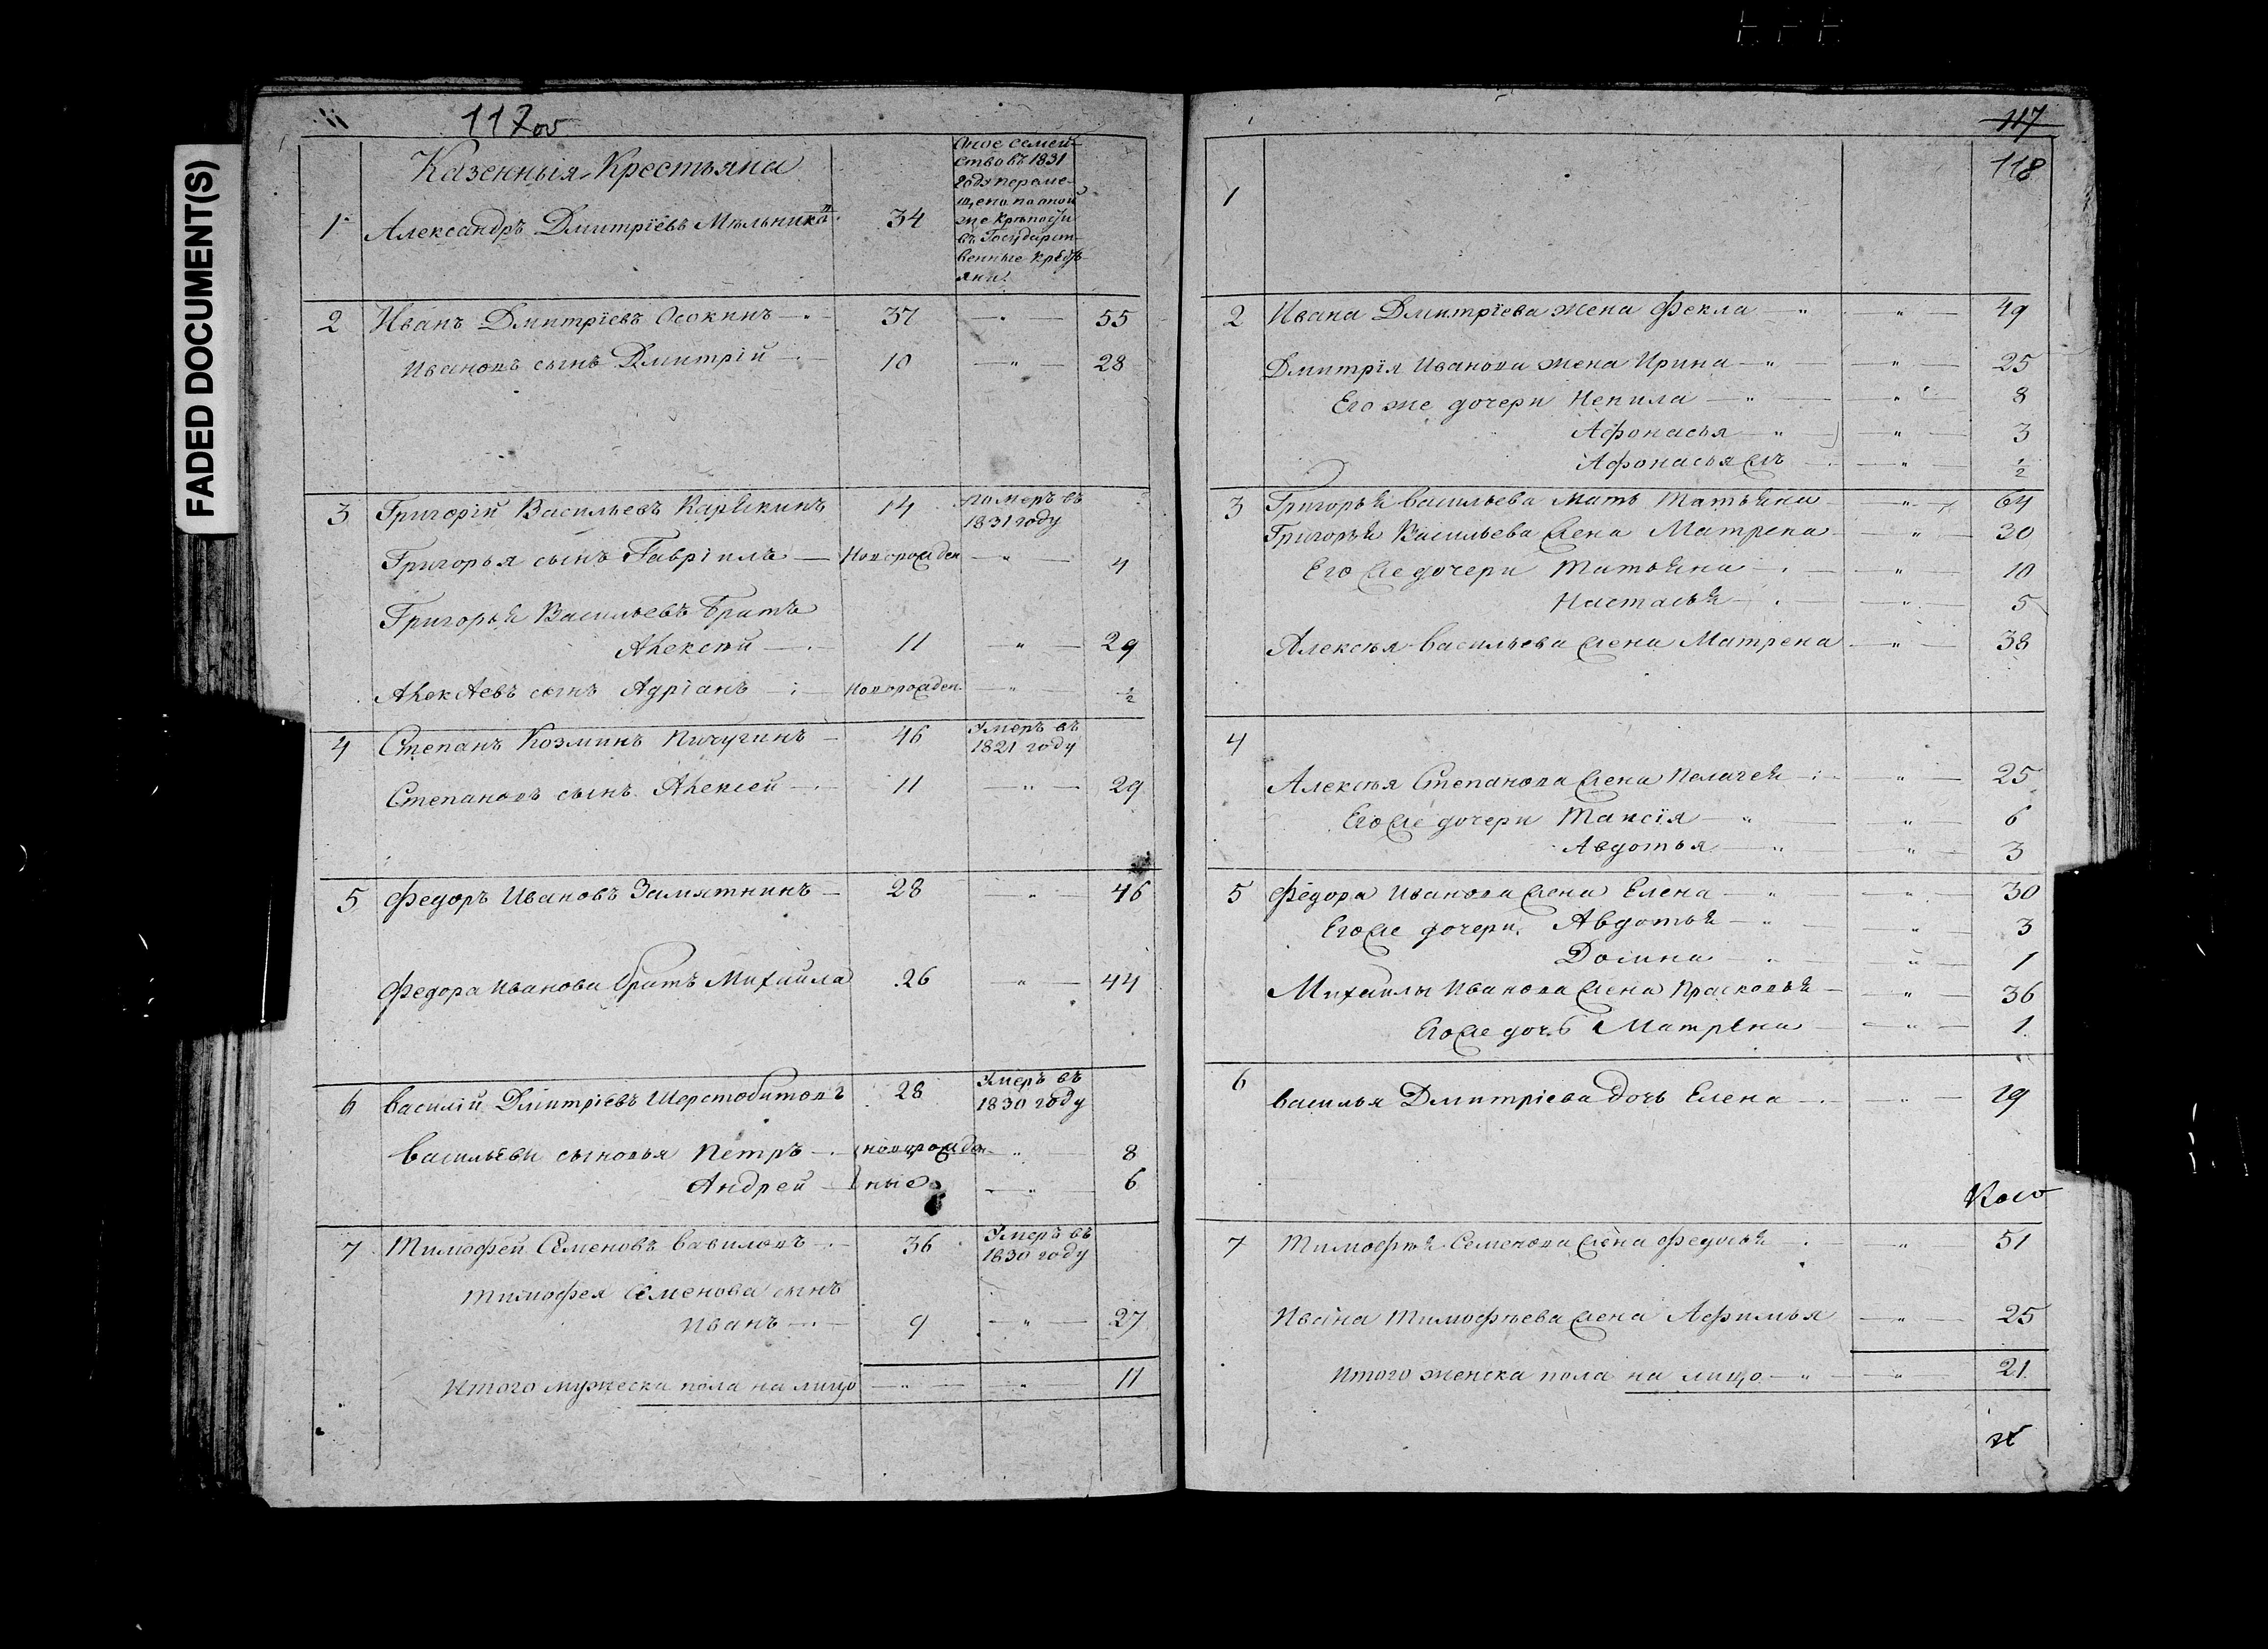 FADED DOCUMENT(S)
117 об
Казенныя Крестьяна
1 Александръ Дмитріевъ Мельник 34
Оное семей-
ство въ 1831
году переме-
щено по оной
же крепости
въ Государст-
венные крестъ
яни
2 Иванъ Дмитріевъ Осокинъ 37 55
Ивановъ сынъ Дмитрій 10 28
3 Григорій Васильевъ Карякинъ 14 померъ въ
1831 году
Григорья сынъ Гавріилъ Новорожден 4
Григорья Васильевъ братъ
Алексей 11 29
Алексеевъ сынъ Адріанъ Новорожден. ½
4 Степанъ Козминъ Пичугинъ 46 Умеръ въ
1821 году
Степановъ сынъ Алексей 11 29
5 Федоръ Ивановъ Замятнинъ 28 46
Федора Иванова братъ Михайла 26 44
6 Василій Дмитріевъ Шерстобитовъ 28 Умеръ въ
1830 году
Васильевы сыновья Петръ новорожден 8
Андрей ные 6
7 Тимофей Семеновъ Вавиловъ 36 Умеръ въ
1830 году
Тимофея Семенова сынъ
Иванъ 9 27
Итого мужеска пола на лицо 11
117
118
1
2 Ивана Дмитріева жена Фекла 49
Дмитрія Иванова жена Ирина 25
Его же дочери Ненила 8
Афонасья 3
Афонасья ½
3 Григорья Васильева мать Татьяна 64
Григорья Васильева жена Матрена 30
Его же дочери Татьяна 10
Настасья 5
Алексея Васильева жена Матрена 38
4
Алексея Степанова жена Пелагея 25
Его же дочери Таисія 6
Авдотья 3
5 Федора Иванова жена Елена 30
Его же дочери Авдотья 3
Домна 1
Михайлы Иванова жена Прасковья 36
Его же дочь Матрена 1
6 Василья Дмитріева дочь Елена 19
7 Тимофея Семенова жена Федосья 51
Ивана Тимофеева жена Афимья 25
Итого женска пола на лицо 21